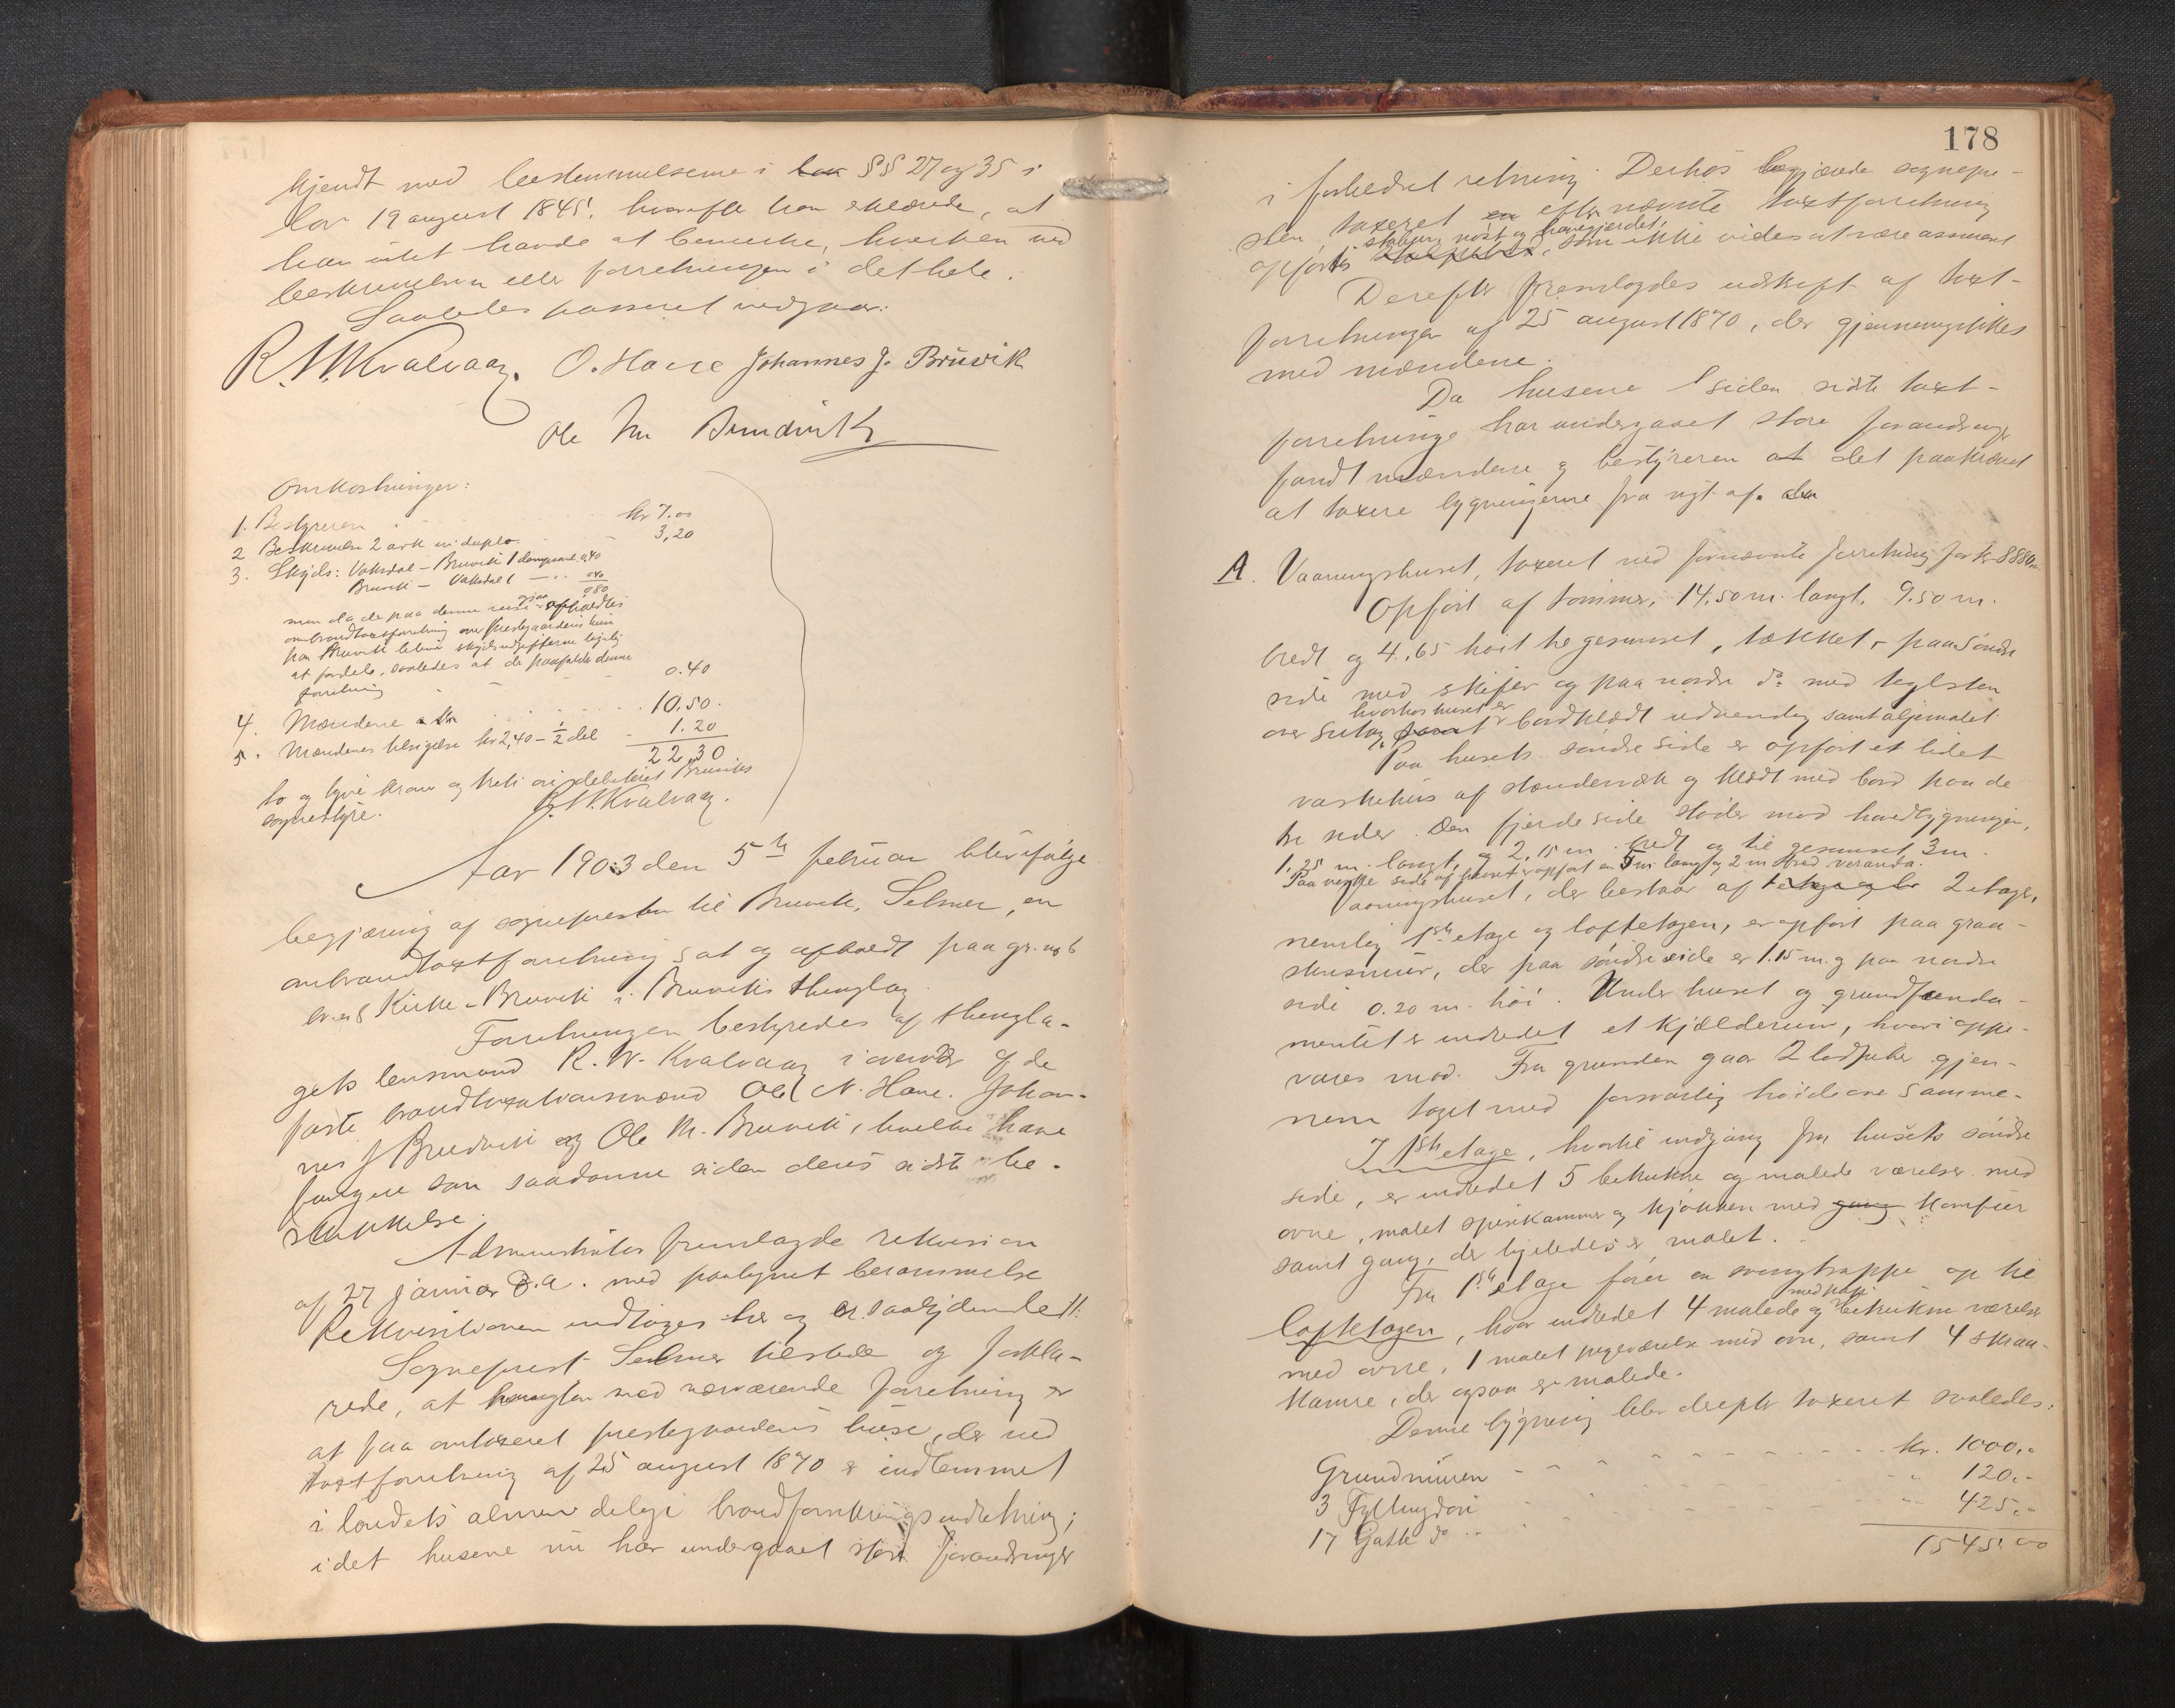 kjendt med bestemmelserne i lov §§ 27 og 35 i
lov 19 august 1845, hvorefter han erklærede, at
han intet havde at bemerke, hverken ved
beskrivelsen eller forretningen i det hele.
Saaledes passeret vedgaar:
R. W. Kvalvaag. O. Haue Johannes J. Bruvik
Ole M. Bruvik
Omkostninger:
1. Bestyreren kr 7.00
2 Beskrivelse 2 ark in duplo 3,20
3. Skyds: Vaksdal - Bruvik 1 0,40
Bruvik - Vaksdal 0,40
0,80
men da der paa denne reise ogsaa afholdtes
ombrandtaxtforretning over prestegaardens huse
paa Bruvik bliver skydsudgifterne ligelig
at fordele, saaledes at der paafalder denne
forretning 0.40
4. Mændene 10.50.
5. Mændenes tilsigelse kr 2,40 - ½ del 1.20
22,30
to og tyve kroner og treti øre debiteret Bruviks
sognestyre. R. W. Kvalvaag.
Aar 1903 den 5te februar blev ifølge
begjæring af sognepresten til Bruvik, Selmer, en
ombrandtaxtforretning sat og afholdt paa gr. no 6
br. n 8 Kirke-Bruvik i Bruviks thinglag.
Forretningen bestyredes af thingla-
gets lensmand R. W. Kvalvaag i overvær af de
faste brandtaxationsmænd Ole N. Haue, Johan-
nes J Bruvik og Ole M. Bruvik, hvilke have
fungeret som saadanne siden deres sidste be-
skikkelse.
Administrator fremlagde rekvisition
af 27 januar d.a. med paategnet berammelse
Rekvisitionen indtages her og er saalydende ://:
Sogneprest Selmer tilstede og forkla-
rede, at hensigten med nærværende forretning er
at faa omtaxeret prestegaardens huse, der ved
taxtforretning af 25 august 1870 er indlemmet
i landets almindelige brandforsikringsindretning;
idet husene nu har undergaaet store forandringer
178
i forbedret retning. Derhos begjærede sognepre-
sten taxeret en efter nævnte taxtforretning
stabur, nøst og havegjerdet,
opførts som ikke vides at være assureret
Derefter fremlagdes udskrift af taxt-
forretningen af 25 august 1870, der gjennemgikkes
med mændene.
Da husene siden sidste taxt-
forretning har undergaaet store forandringer
fandt mændene og bestyreren at det paakrævet
at taxere bygningerne fra nyt af.
A. Vaaningshuset, taxeret ved fornævnte forretning for kr 8880,00
Opført af tømmer, 14.50 m. langt, 9.50 m.
bredt og 4.65 høit til gesimset, tækket paa søndre
side med skifer og paa nordre do med teglsten
hvorhos huset er
over sutag, samt bordklædt udvendig samt oljemalet
Paa husets søndre side er opført et lidet
vaskehus af stænderværk og klædt med bord paa de
tre sider. Den fjerde side støder mod hovedbygningen,
1.25 m. langt, og 2,15 m bredt og til gesimset 3 m.
Paa vestre side af huset er opført en 5 m lang og 2 m bred veranda.
Vaaningshuset, der bestaar af 2 etager,
nemlig 1ste etage og loftetagen, er opført paa graa-
stensmur, der paa søndre side er 1.15 m. og paa nordre
side 0.20 m. høi. Under huset og grundfunda-
mentet er indredet et kjælderrum, hvori oppe-
vares mad. Fra grunden gaar 2 ildpiber gjen-
nem taget med forsvarlig høide over samme.
I 1ste etage, hvortil indgang fra husets søndre
side, er indredet 5 betrukne og malede værelser med
ovne, malet spisekammer og kjøkken med gang komfur
samt gang, der ligeledes er malet.
Fra 1ste etage fører en svingtrappe op til
loftetagen, hvor indredet 4 malede og betrukne værelser
med ovne, 1 malet pigeværelse med ovn, samt 4 skraa-
kamre, der ogsaa er malede.
Denne bygning blev derefter taxeret saaledes:
Grundmuren kr. 1000,-
3 Fyllingdøre 120,-
17 Gatte do 425,-
1545,00